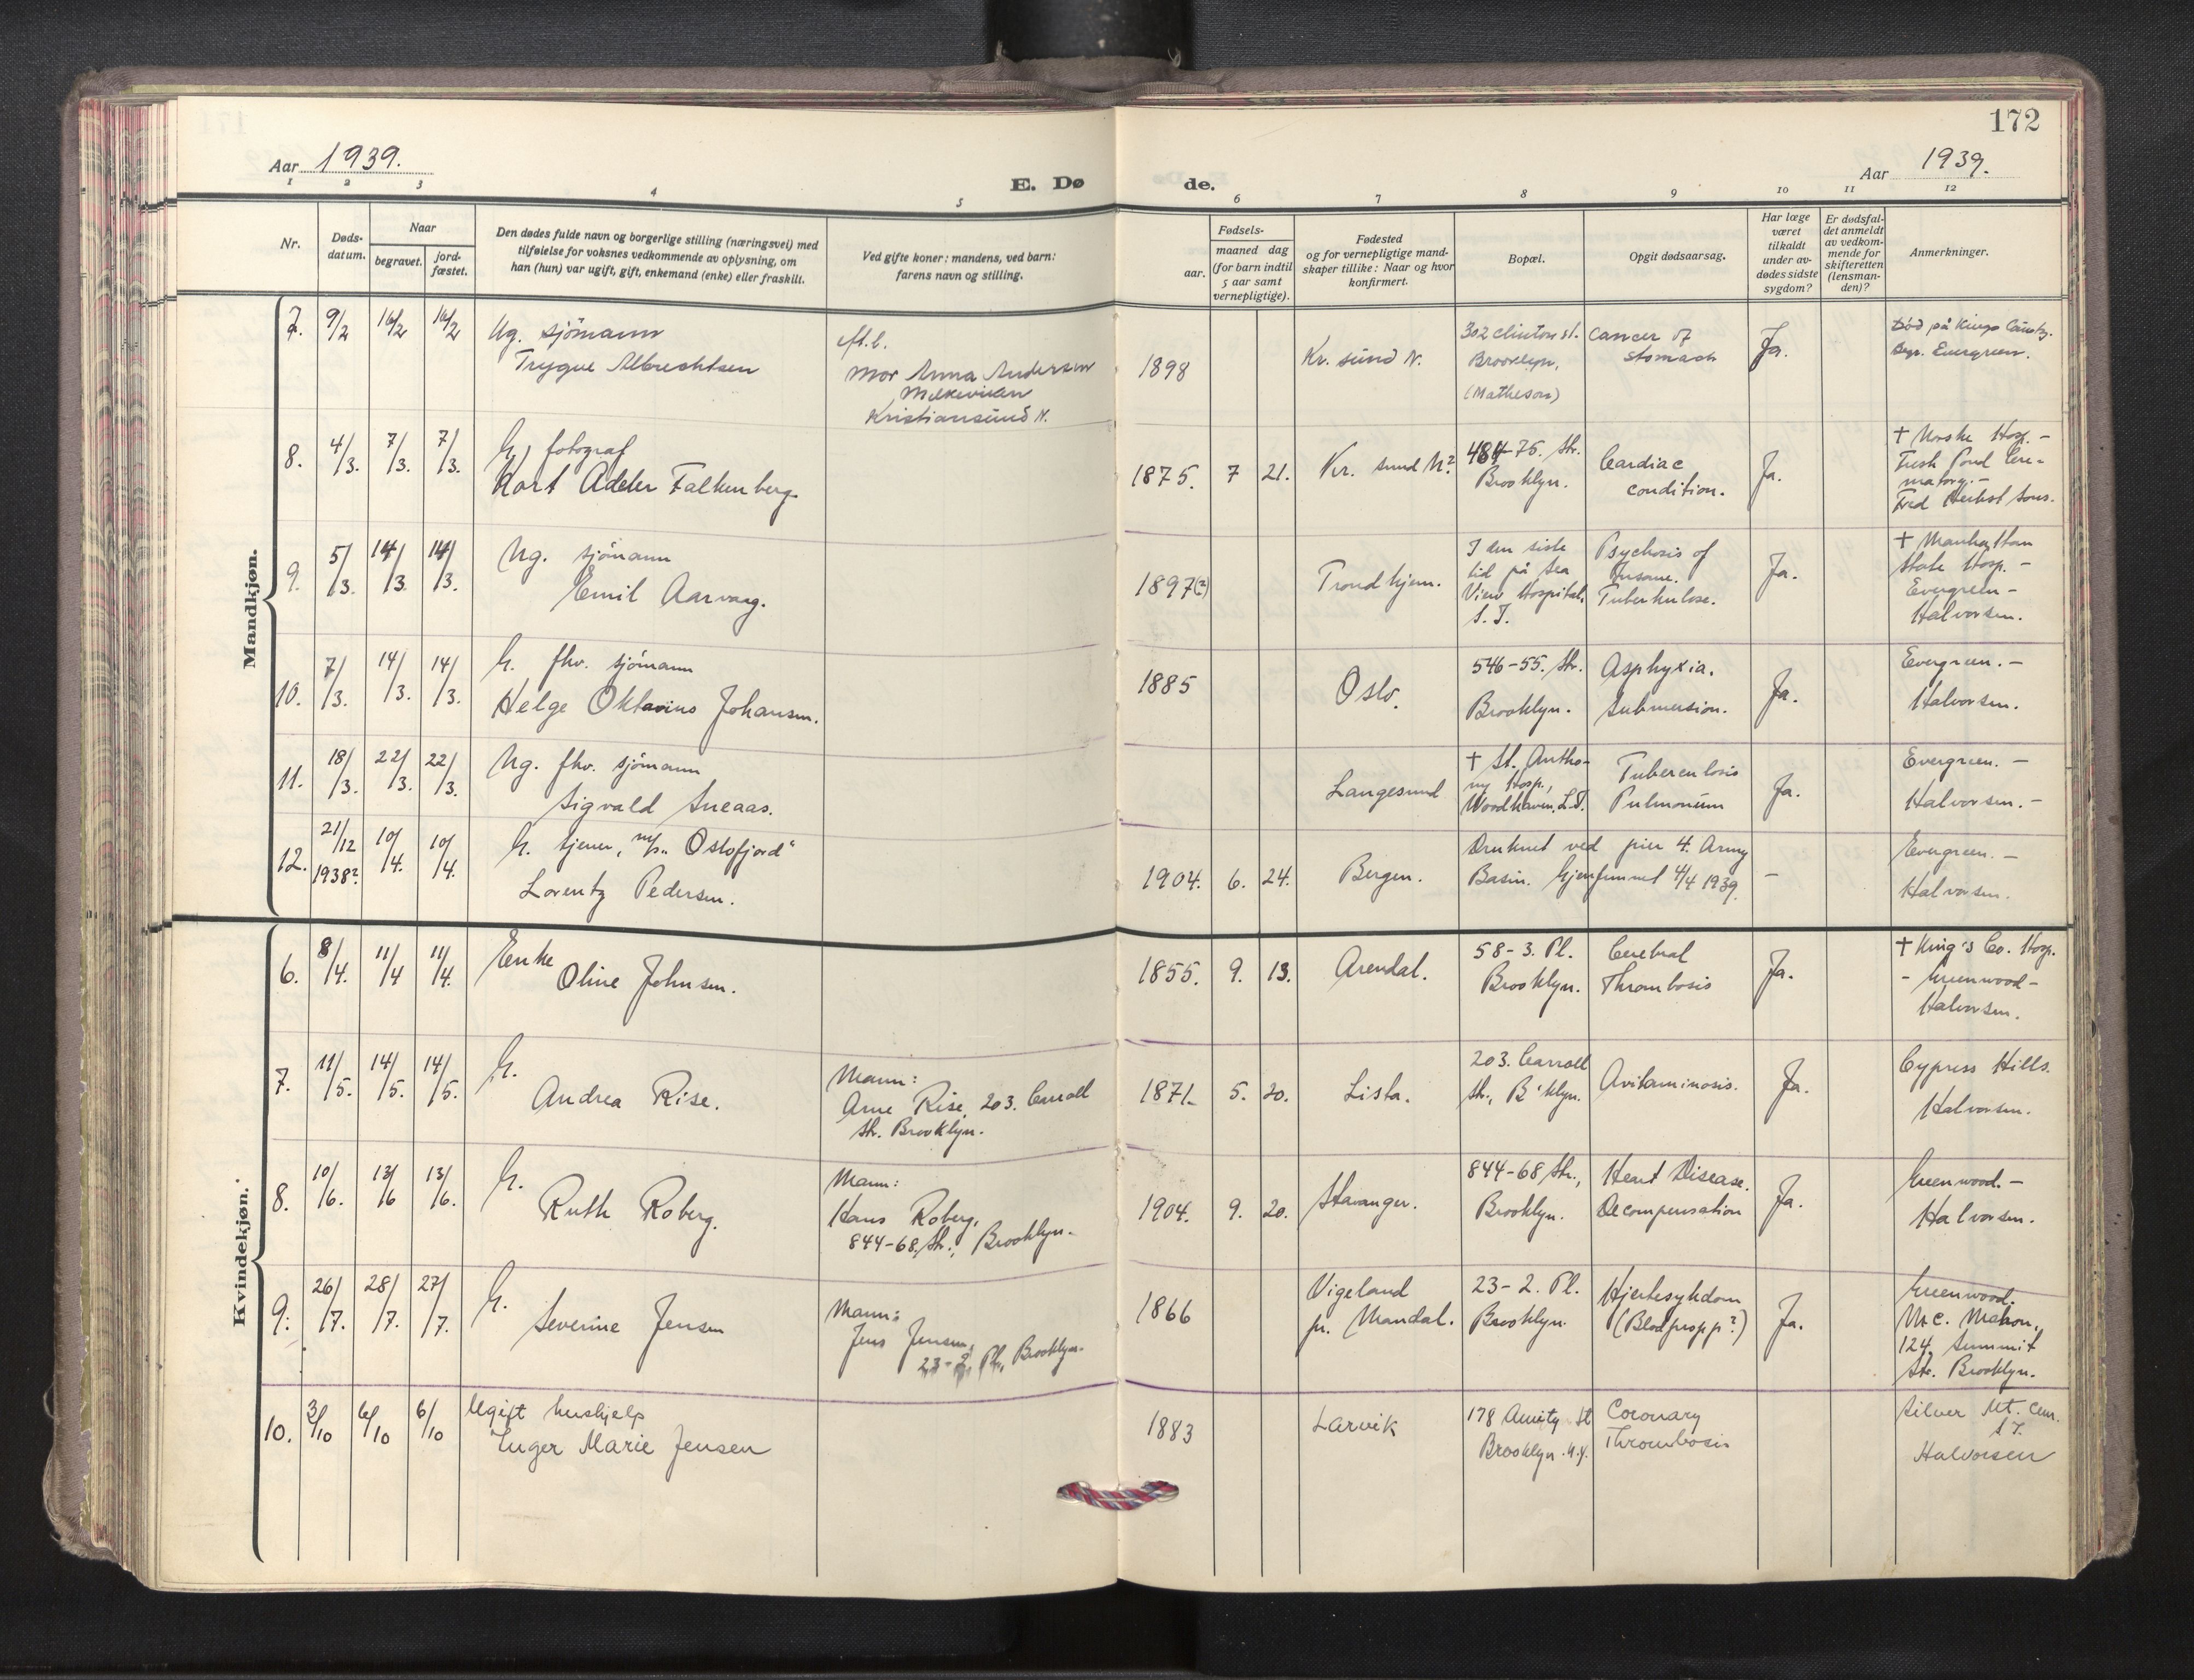 172
Aar 1939.
Aar 1939.
E. Dø de.
1 2 3 4 5 6 7 8 9 10 11 12
Nr.
Døds-
datum.
Naar
begravet.
jord-
fæstet.
Den dødes fulde navn og borgerlige stilling (næringsvei) med
tilføielse for voksnes vedkommende av oplysning, om
han (hun) var ugift, gift, enkemand (enke) eller fraskilt.
Ved gifte koner: mandens, ved barn:
farens navn og stilling.
Fødsels-
aar.
maaned dag
(for barn indtil
5 aar samt
vernepligtige).
Fødested
og for vernepligtige mand-
skaper tillike: Naar og hvor
konfirmert.
Bopæl.
Opgit dødsaarsag.
Har læge
været
tilkaldt
under av-
dødes sidste
sygdom?
Er dødsfal-
det anmeldt
av vedkom-
mende for
skifteretten
(lensman-
den)?
Anmerkninger.
Mandkjøn.
7. 9/2 16/2 16/2
Ug. sjömann
Trygve Albrechtsen
Mor Anna Andersen
Kristiansund N.
1898
Kr. sund N.
302 Clinton st.
Brooklyn.
(Matheson)
Cancer of
stomach
Ja.
Død på Kings County.
Begr. Evergreen.
8. 4/3. 7/3. 7/3.
G, fotograf
Kort Adeler Falkenberg.
1875. 7 21.
Kr. sund N?
484-75. Str.
Brooklyn.
Cardiac
condition.
Ja.
† Norske Hosp. -
Fresh Pond Cre-
matory. -
Fred Herbst Sons.
9. 5/3. 14/3. 14/3.
Ug. sjömann
Emil Aarvaag.
1897(?)
Trondhjem.
I den siste
tid på Sea
View Hospital,
S. I.
Psychosis of
Insane.
Tuberkulose.
Ja.
† Manhattan
State Hosp. -
Evergreen -
Halvorsen.
10. 7/3. 14/3. 14/3.
G. fhv. sjömann
Helge Oktavius Johansen.
1885
Oslo.
546-55. Str.
Brooklyn.
Asphyxia.
Submersion.
Ja.
Evergreen. -
Halvorsen.
11. 18/3. 22/3. 22/3.
Ug. fhv. sjömann
Sigvald Sneaas.
Langesund
† St. Antho-
ny Hosp.,
Woodhaven, L.I.
Tuberculosis
Pulmonum
Ja.
Evergreen. -
Halvorsen. -
12. 21/12 1938? 10/4. 10/4.
G. tjener, m/s „Oslofjord"
Lorentz Pedersen.
1904. 6. 24.
Bergen.
Druknet ved pier 4. Army
Basin. Gjenfunnet 4/4 1939.
-
Evergreen. -
Halvorsen.
Kvindekjøn.
6. 8/4. 11/4 11/4.
Enke
Oline Johnsen.
1855. 9. 13.
Arendal.
58-3. Pl.
Brooklyn.
Cerebral
Thrombosis
Ja.
† King's Co. Hosp.
- Greenwood -
Halvorsen.
7. 11/5. 14/5. 14/5.
G.
Andrea Rise.
Mann:
Arne Rise, 203. Carroll
Str. Brooklyn.
1871. 5. 20.
Lista.
203. Carroll
Str., B'klyn.
Avitaminosis.
Ja.
Cypress Hills.
Halvorsen.
8. 10/6. 13/6 13/6.
G.
Ruth Roberg.
Mann:
Hans Roberg,
844-68. Str., Brooklyn.
1904. 9. 20.
Stavanger.
844-68 Str.,
Brooklyn.
Heart Disease.
Decompensation
Ja.
Greenwood. -
Halvorsen.
9. 26/7. 28/7. 27/7.
G.
Severine Jensen
Mann:
Jens Jensen,
23-2. Pl., Brooklyn.
1866
Vigeland
pr. Mandal.
23-2. Pl.
Brooklyn.
Hjertesykdom
(Blodpropp?)
Ja.
Greenwood.
Mc. Mahon,
124 Summit
Str. Brooklyn.
10. 3/10 6/10 6/10
Ugift hushjelp
Inger Marie Jensen
1883
Larvik
178 Amity St
Brooklyn. N.Y.
Coronary
Thrombosis
Silver Mt. Cem.
S. I.
Halvorsen